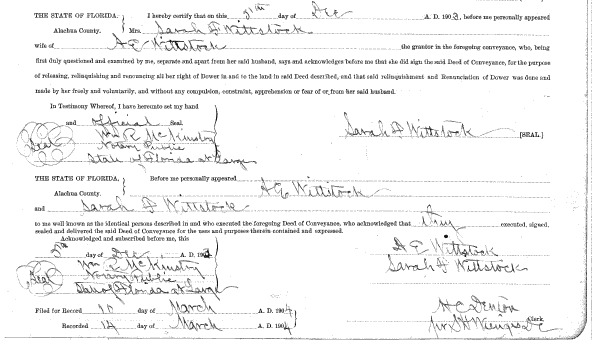 THE STATE OF FLORIDA, } I hereby certify that on this 5th day of Dec A. D. 1903, before me personally appeared
Alachua County. } Mrs. Sarah F Wittstock
wife of A E Wittstock the grantor in the foregoing conveyance, who, being
first duly questioned and examined by me, separate and apart from her said husband, says and acknowledges before me that she did sign the said Deed of Conveyance, for the purpose
of releasing, relinquishing and renouncing all her right of Dower in and to the land in said Deed described, and that said relinquishment and Renunciation of Dower was done and
made by her freely and voluntarily, and without any compulsion, constraint, apprehension or fear of or from her said husband.
In Testimony Whereof, I have hereunto set my hand
and official Seal.
Seal Wm R McKinstry Sarah F Wittstock [SEAL]
Notary Public
State of Florida at Large
THE STATE OF FLORIDA, } Before me personally appeared A E Wittstock
Alachua County. }
and Sarah F Wittstock
to me well known as the identical persons described in and who executed the foregoing Deed of Conveyance, who acknowledged that they executed, signed,
sealed and delivered the said Deed of Conveyance for the uses and purposes therein contained and expressed.
Acknowledged and subscribed before me, this
5th day of Dec A. D. 1903 A E Wittstock
Seal Wm R McKinstry Sarah F Wittstock
Notary Public
State of Florida at Large
Filed for Record 10 day of March A. D. 1904 H C Denton Clerk.
Recorded 14 day of March A. D. 1904 per S H Wienges D C